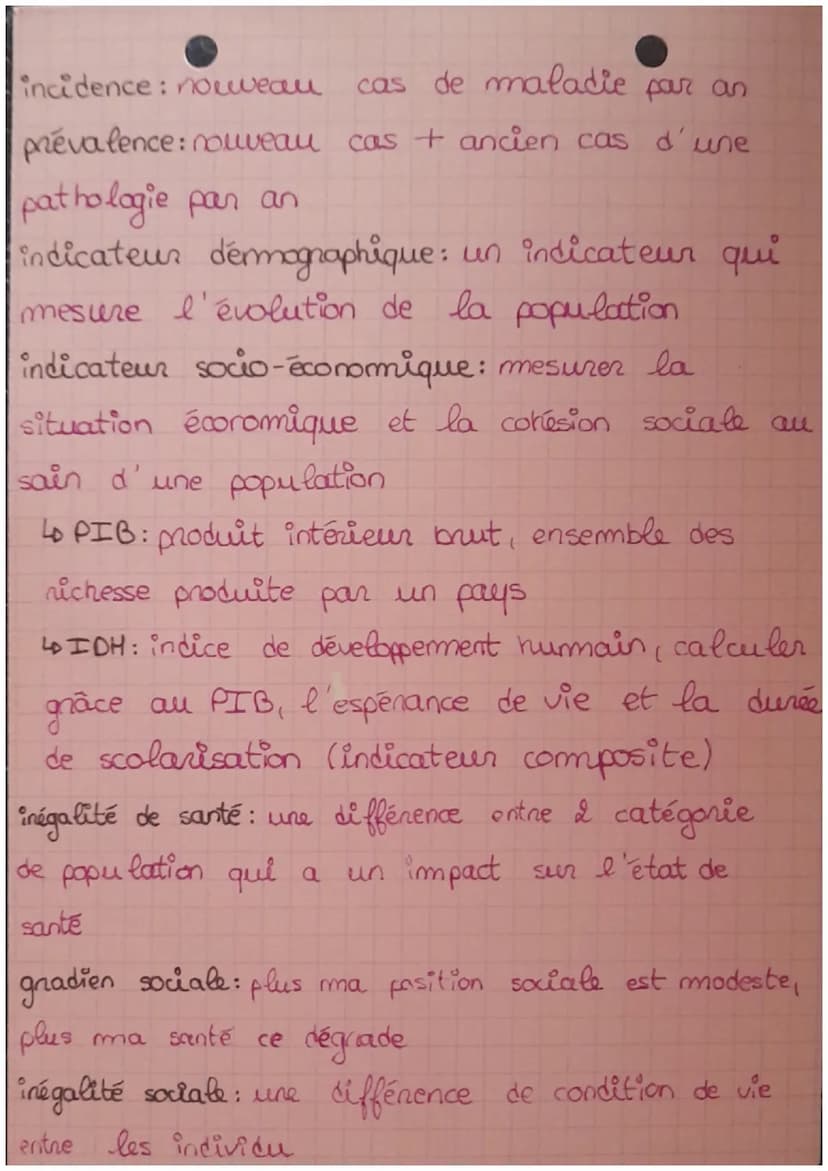 incidence : nouveau cas de maladie par an
prévalence : nouveau cas + ancien cas d'une
pathologie par an
indicateur démographique : un indicateur qui
mesure l'évolution de la population
indicateur socio-économique : mesurer la
situation économique et la cohésion sociale au
sain d'une population
↳ PIB : produit intérieur brut, ensemble des
richesse produite par un pays
↳ IDH : indice de développement humain, calculer
grâce au PIB, l'espérance de vie et la durée
de scolarisation (indicateur composite)
inégalité de santé : une différence entre 2 catégorie
de population qui a un impact sur l'état de
santé
gradien sociale : plus ma position sociale est modeste,
plus ma santé ce dégrade
inégalité sociale : une différence de condition de vie
entre les individu